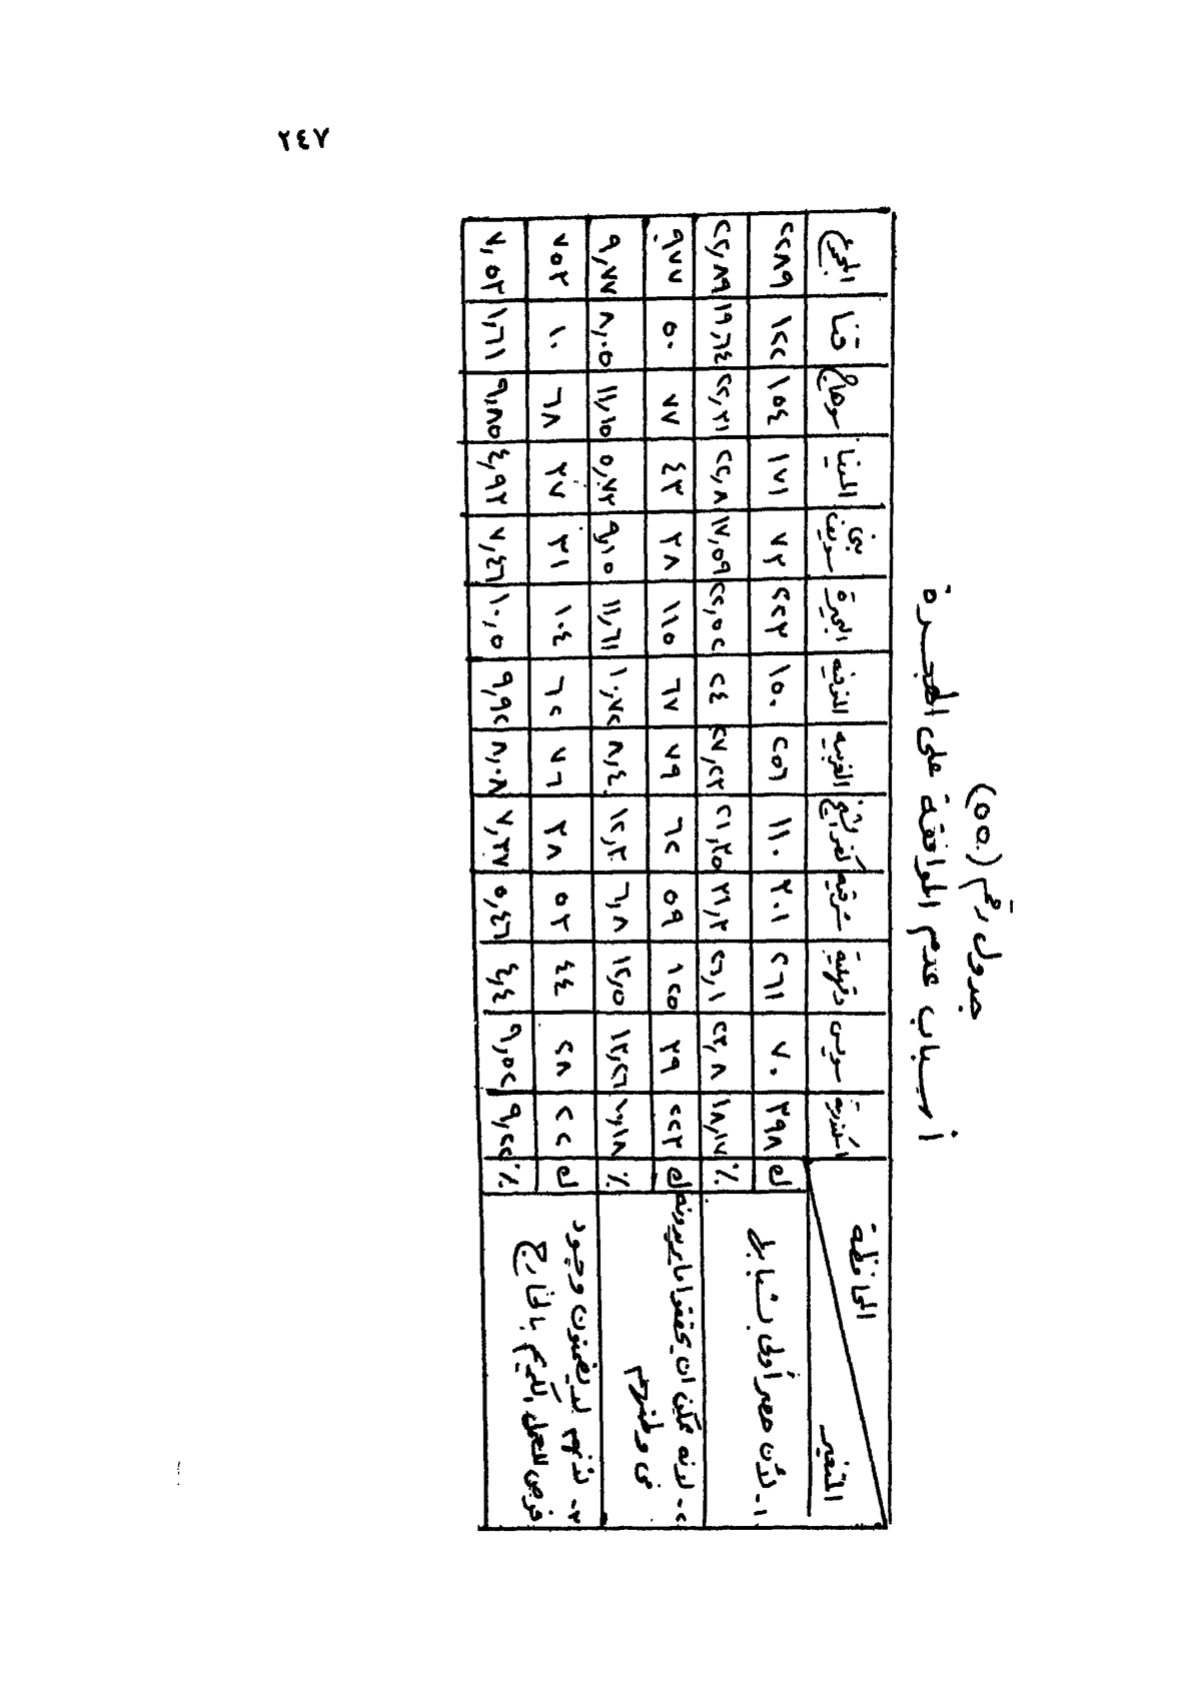 ٢٤٧
جدول رقم (٥٥)
أسباب عدم الموافقة على الهجرة
المتغير المحافظة اسكندرية سويس دقهلية شرقيه كفر الشيخ الغربيه المنوفيه البحيرة بنى سويف المنيا سوهاج قنا المجموع
١- لأن مصر أولى بشبابها
ك ٣٩٨ ٧٠ ٢٦١ ٣٠١ ١١٠ ٢٥٦ ١٥٠ ٢٢٣ ٧٣ ١٧١ ١٥٤ ١٢٢ ٢٢٨٩
٪ ١٨,١٧ ٢٣,٨ ٢٦,١ ٣١,٣ ٢١,٣٥ ٢٧,٢٣ ٢٤ ٢٢,٥٢ ١٧,٥٩ ٢٢,٨ ٢٢,٣١ ١٩,٦٤ ٢٢,٨٩
٢- لأنه يمكن ان يحققوا ما يريدونه
فى وطنهم
ك ٢٢٣ ٣٩ ١٢٥ ٥٩ ٦٢ ٧٩ ٦٧ ١١٥ ٣٨ ٤٣ ٧٧ ٥٠ ٩٧٧
٪ ١٠,١٨ ١٣,٢٦ ١٢,٥ ٦,٨ ١٢,٣ ٨,٤ ١٠,٧٢ ١١,٦١ ٩,١٥ ٥,٧٣ ١١,١٥ ٨,٠٥ ٩,٧٧
٣- لأنهم لا يضمنون وجود
فرص للعمل الكريم بالخارج
ك ٢٠٢ ٢٨ ٤٤ ٥٣ ٣٨ ٧٦ ٦٢ ١٠٤ ٣١ ٣٧ ٦٨ ١٠ ٧٥٣
٪ ٩,٢٢ ٩,٥٢ ٤,٤ ٥,٤٦ ٧,٣٧ ٨,٠٨ ٩,٩٢ ١٠,٥ ٧,٤٦ ٤,٩٣ ٩,٨٥ ١,٦١ ٧,٥٣